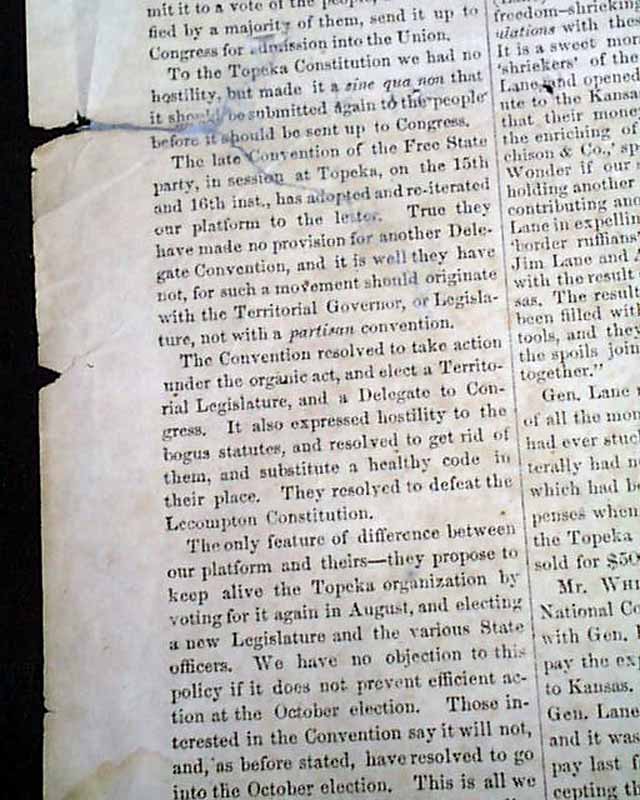 mit it to a vote of the people,
fied by a majority of them, send it up to
Congress for admission into the Union.
To the Topeka Constitution we had no
hostility, but made it a sine qua non that
it should be submitted again to the people
before it should be sent up to Congress.
The late Convention of the Free State
party, in session at Topeka, on the 15th
and 16th inst., has adopted and re-iterated
our platform to the letter. True they
have made no provision for another Dele-
gate Convention, and it is well they have
not, for such a movement should originate
with the Territorial Governor, or Legisla-
ture, not with a partisan convention.
The Convention resolved to take action
under the organic act, and elect a Territo-
rial Legislature, and a Delegate to Con-
gress. It also expressed hostility to the
bogus statutes, and resolved to get rid of
them, and substitute a healthy code in
their place. They resolved to defeat the
Lecompton Constitution.
The only feature of difference between
our platform and theirs—they propose to
keep alive the Topeka organization by
voting for it again in August, and electing
a new Legislature and the various State
officers. We have no objection to this
policy if it does not prevent efficient ac-
tion at the October election. Those in-
terested in the Convention say it will not,
and, as before stated, have resolved to go
into the October election. This is all we
freedom-shrieking
ulations with these
It is a sweet mor
'shriekers' of the
Lane and opened
ute to the Kansa
that their mone
the enriching of
chison & Co.,' sp
Wonder if our
holding another
contributing ano
Lane in expellin
'border ruffians'
Jim Lane and A
with the result
sas. The result
been filled with
tools, and they
the spoils join
together."
Gen. Lane
of all the mon
had ever stuc
terally had n
which had be
penses when
the Topeka
sold for $50
Mr. WHI
National Co
with Gen. L
pay the exp
to Kansas.
Gen. Lane
and it was
pay last f
cepting th